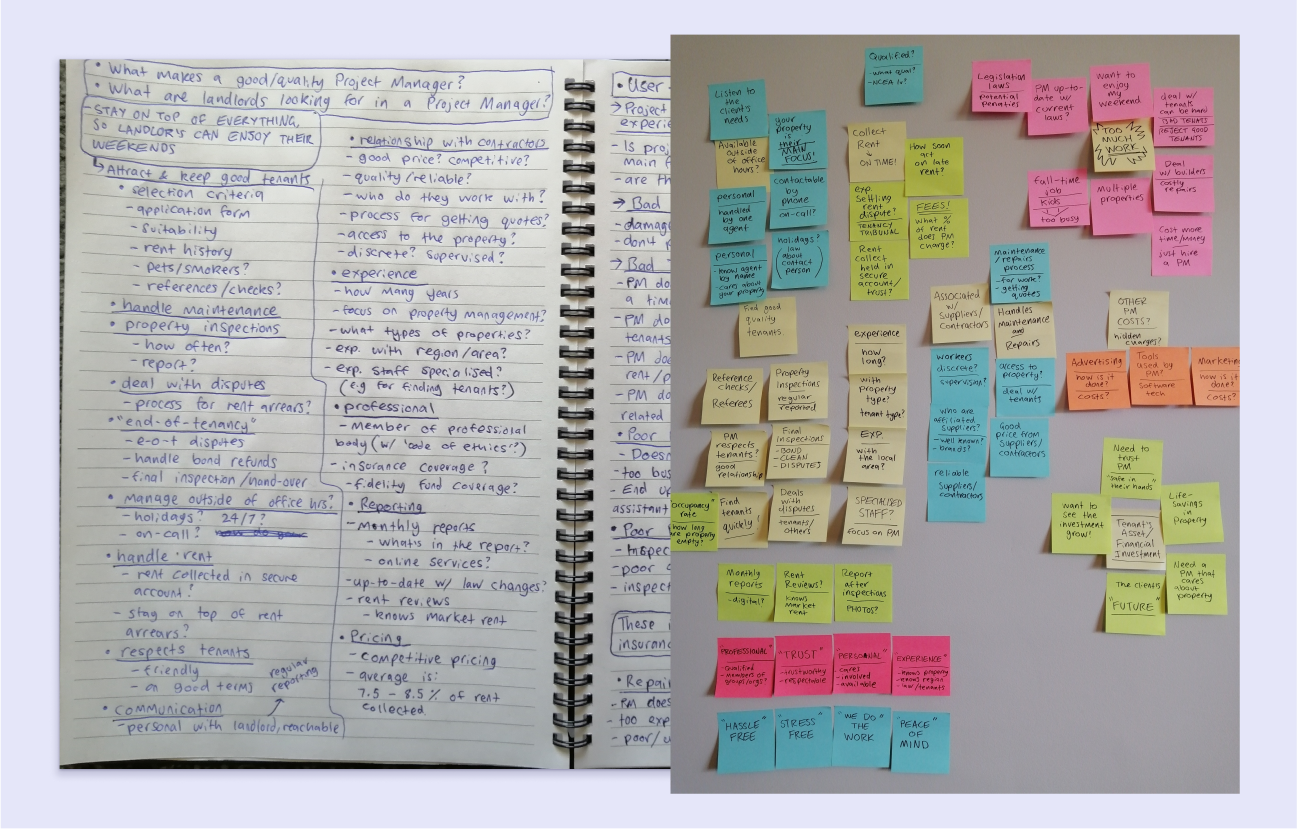 • What makes a good/quality Project Manager?
• What are landlords looking for in a Project Manager?
- STAY ON TOP OF EVERYTHING,
SO LANDLOR'S CAN ENJOY THEIR
WEEKENDS
↳ Attract & keep good tenants
• selection criteria
- application form
- suitability
- rent history
- pets/smokers?
- references/checks?
• handle maintenance
• property inspections
- how often?
- report?
• deal with disputes
- process for rent arrears?
• "end-of-tenancy"
- e-o-t disputes
- handle bond refunds
- final inspection/hand-over
• manage outside of office hrs?
- holidays? 24/7?
- on-call?
• handle rent
- rent collected in secure
account?
- stay on top of rent
arrears?
• respects tenants
- friendly
- on good terms
regular
reporting
• communication
- personal with landlord, reachable
• relationship with contractors
- good price? competitive?
- quality/reliable?
- who do they work with?
- process for getting quotes?
- access to the property?
- discrete? supervised?
• experience
- how many years
- focus on property management?
- what types of properties?
- exp. with region/area?
- exp. staff specialised?
(e.g for finding tenants?)
• professional
- member of professional
body (w/ 'code of ethics'?)
- insurance coverage?
- fidelity fund coverage?
• Reporting
- Monthly reports
- what's in the report?
- online services?
- up-to-date w/ law changes?
- rent reviews
- knows market rent
• Pricing
- competitive pricing
- average is:
7.5 - 8.5% of rent
collected
• User
→ Project
experie
- Is proj
main f
- are th
→ Bad
- damag
- don't p
→ Bad
- PM do
a tim
- PM do
tenants
- PM doe
rent/p
- PM do
related
• Poor
- Doesn
- too bus
- End up
assistant
• Poor
- Inspec
- poor q
- inspect
These i
insuranc
• Repair
- PM does
- too exp
- poor/u
Qualified?
- what qual?
- NCEA lv?
Listen to
the
client's
needs
your
property
is their
MAIN
FOCUS!
Available
outside
of office
hours?
personal
handled
by one
agent
contactable
by
phone
on-call?
personal
- know agent
by name
- cares about
your property
holidays?
law
about
contact
person
Find good
quality
tenants
Collect
Rent
ON TIME!
How soon
act
on late
rent?
exp.
Settling
rent
dispute?
TENANCY
TRIBUNAL
FEES!
What %
of rent
does PM
charge?
Rent
collect
held in
secure
account/
trust?
Legislation
laws
potential
penalties
PM up-to-
date w/
current
laws?
Want to
enjoy
my
weekend
deal w/
tenants
can be hard
BAD TENANTS
REJECT GOOD
TENANTS
TOO
MUCH
WORK
Deal
w/ builders
costly
repairs
full-time
job
Kids
too busy
Multiple
properties
Cost more
time/money
just hire
a PM
maintenance
/repairs
process
- for work?
- getting
quotes
Associated
w/
Suppliers/
Contractors
Handles
Maintenance
and
Repairs
workers
discrete?
supervision?
access to
property?
deal w/
tenants
who are
affiliated
suppliers?
- well known?
- brands?
Good
price from
Suppliers/
contractors
reliable
Suppliers/
contractors
OTHER
PM
COSTS?
hidden
charges?
Advertising
how is it
done?
costs?
Tools
used by
PM?
Software
tech
Marketin
how is it
done?
costs?
Reference
checks/
Referees
Property
Inspections
regular
reported
experience
how
long?
with
property
type?
tenant type?
PM
respects
tenants?
good
relationship
Final
inspections
- BOND
- CLEAN
- DISPUTES
EXP.
with the
local
area?
Occupancy
rate
how long
are property
empty?
Find
tenants
quickly!
Deals
with
disputes
tenants/
others
SPECIALISED
STAFF?
focus on PM
Need to
trust
PM
"safe in
their hands"
want to
see the
investment
grow!
Tenant's
Asset/
Financial
Investment
Life-
savings in
Property
The clients
"FUTURE"
Need a
PM that
cares
about
property
Monthly
reports
- digital?
Rent
Reviews?
knows
market
rent
Report
after
inspections
PHOTOS?
"PROFESSIONAL"
- Qualified
- Members of
groups/orgs?
"TRUST"
- trustworthy
- respectable
"PERSONAL"
- cares
- involved
- available
"EXPERIENCE"
- knows property
- knows region
- law/tennats
"HASSLE"
FREE
"STRESS"
FREE
"WE DO"
THE
WORK
"PEACE"
OF
MIND